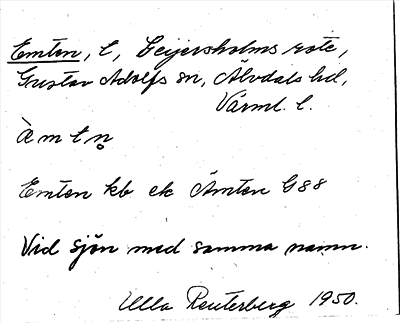 Emten, l, Geijersholms rote,
Gustav Adolfs sn, Älvdals hd,
Värml. l.
ä̀mtn̥
Emten kb ek Ämten G88
Vid sjön med samma namn.
Ulla Reuterberg 1950.